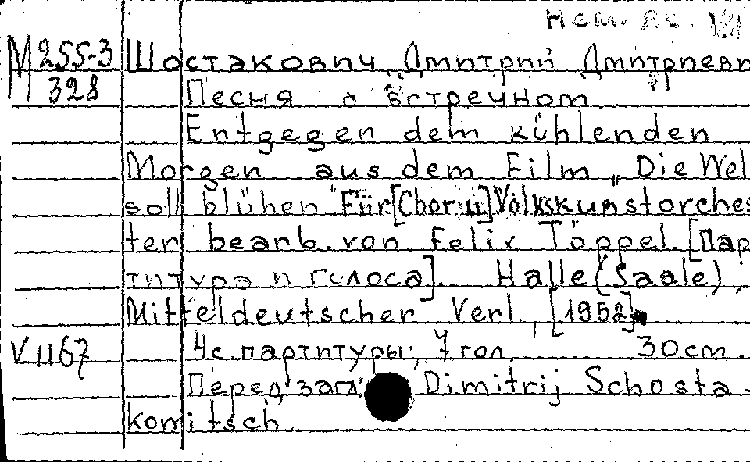 М 255-3 Шостакович, Дмитрий Дмитриеви
328 "Песня о встречном"
Entgegen dem kühlenden
Morgen aus dem Film "Die Wel
soll blühen" Für [Chor u.] Volkskunstorches
ter bearb. von Felix Töppel. [Пар
титура и голоса]. Halle (Saale),
Mitteldeutscher Verl., [1952].
V 1167 4 с. партитуры, 7 гол. 30 cm.
Перед загл.: Dimitrij Schosta-
kowitsch